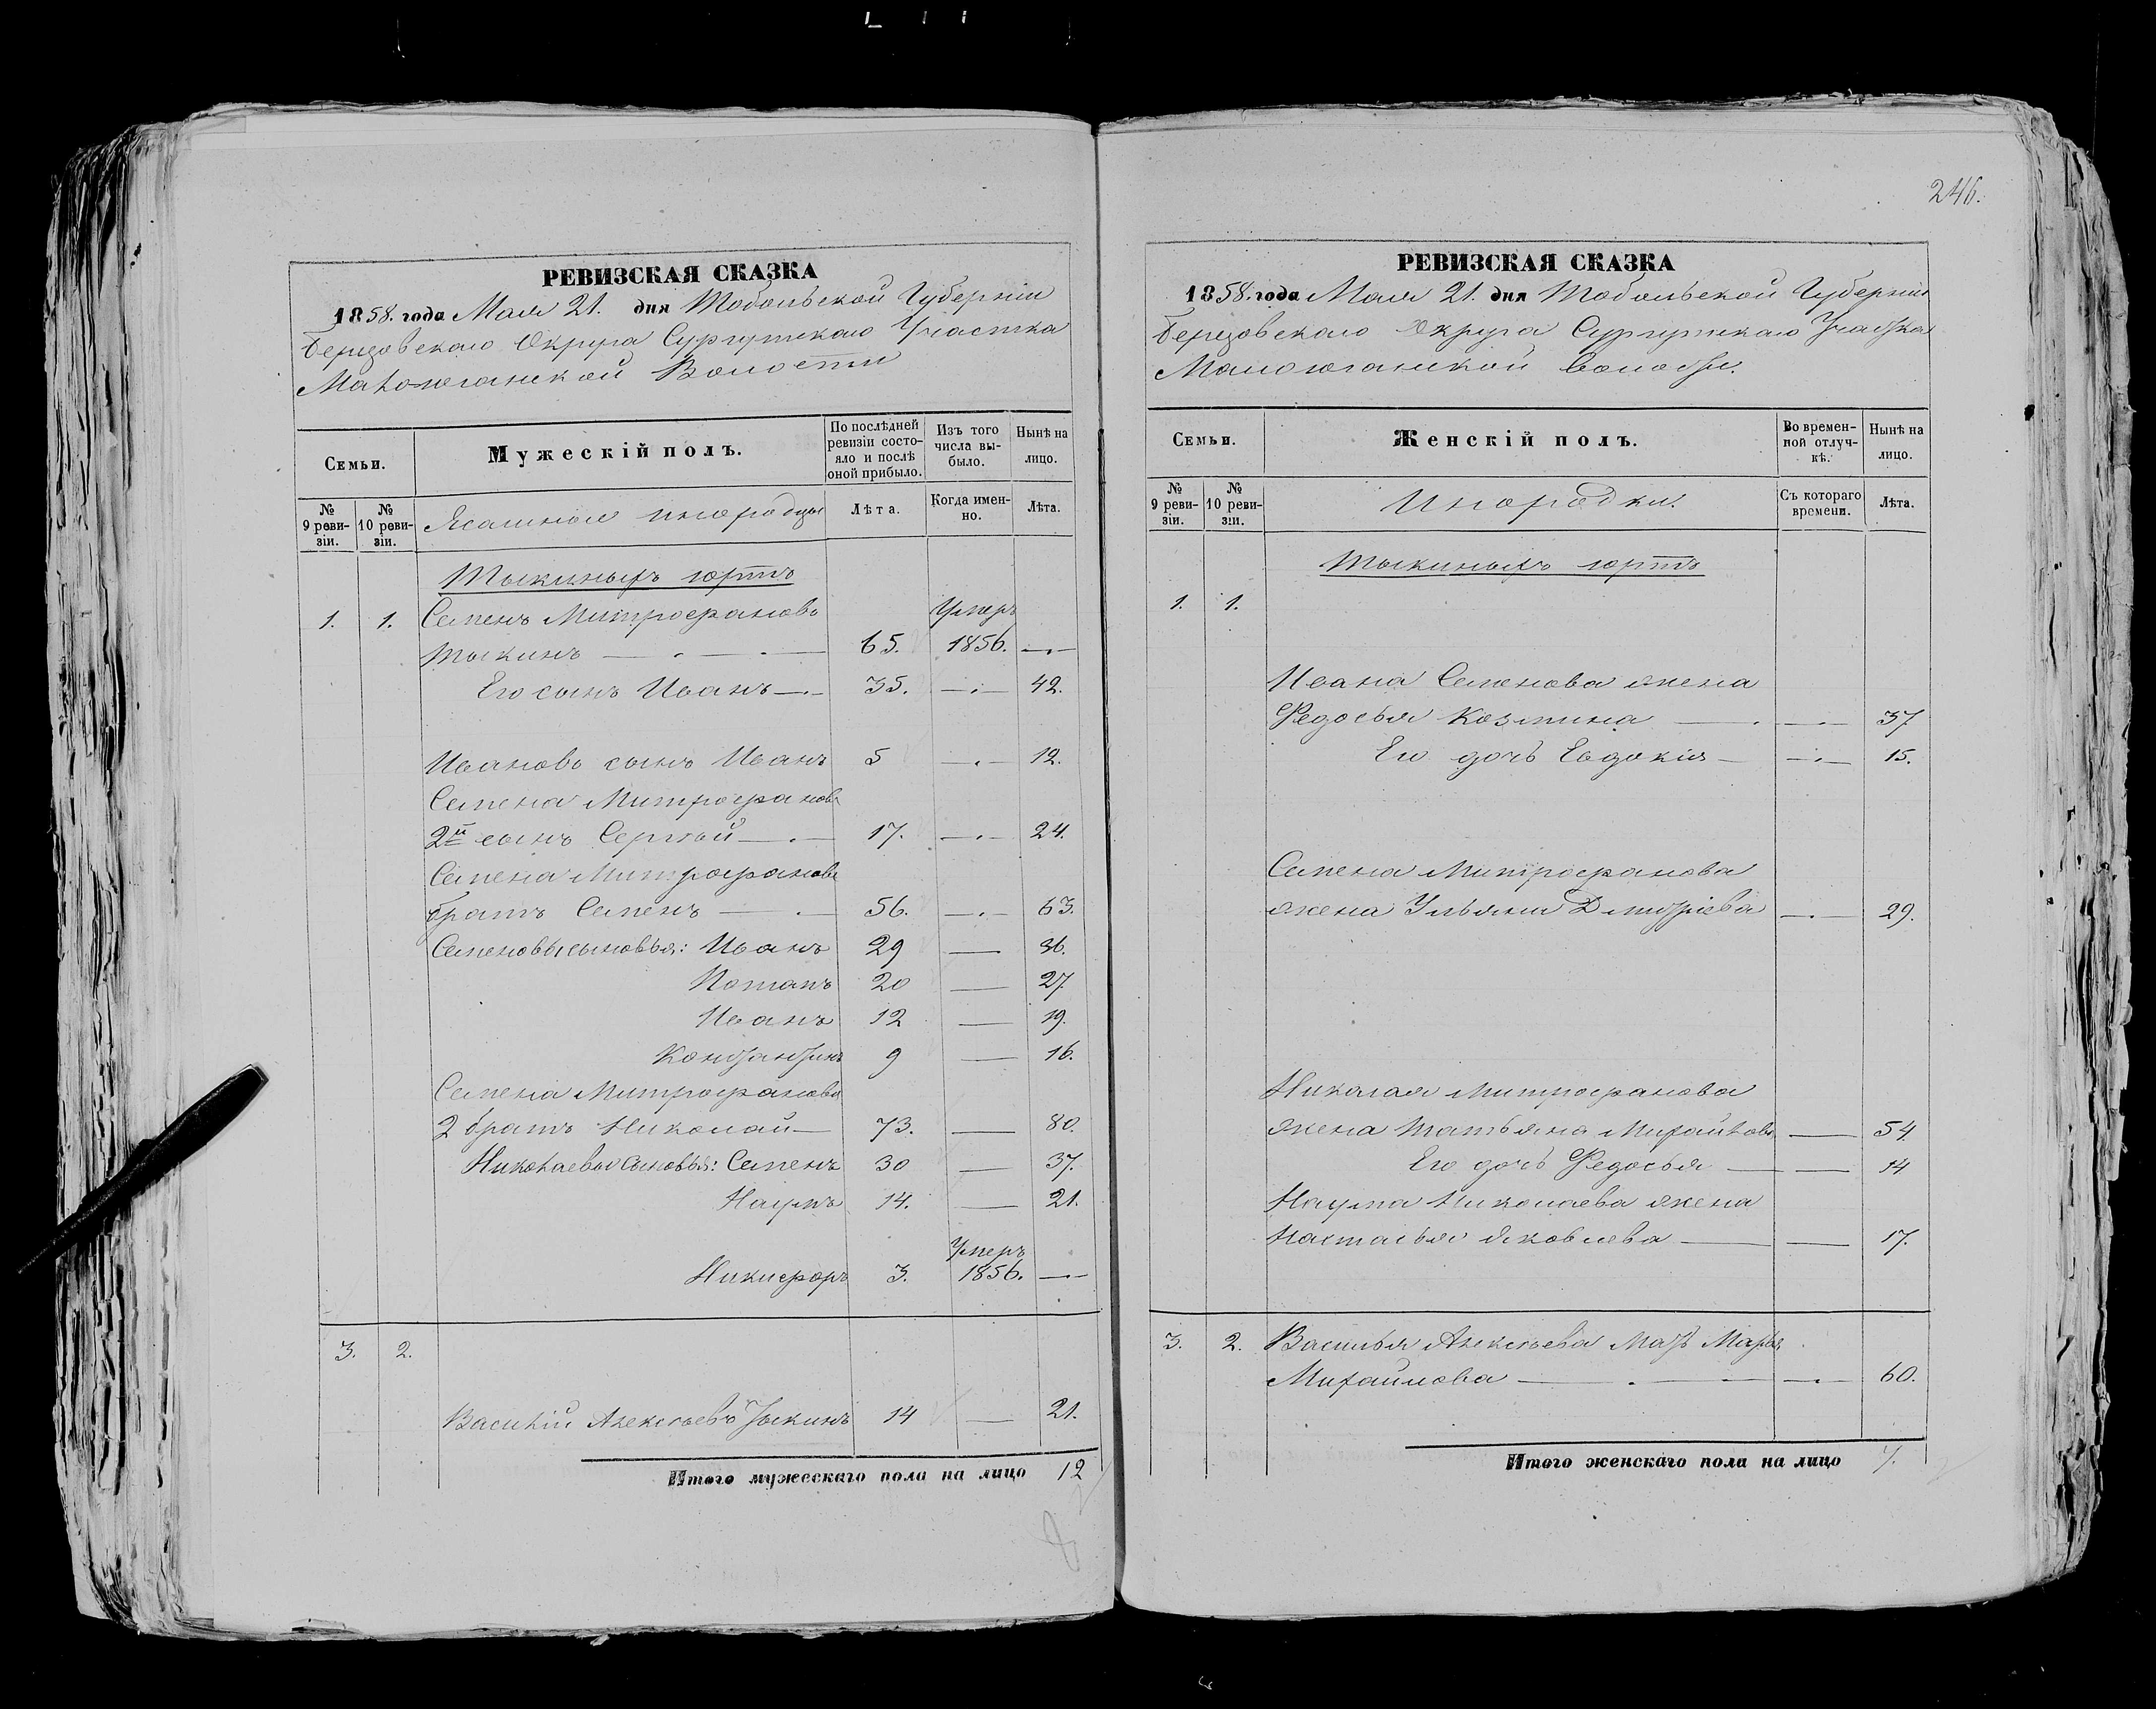 РЕВИЗСКАЯ СКАЗКА
1858. года Мая 21. дня Тобольской Губерніи
Березовскаго Округа Сургутскаго Участка
Малоюганской Волости
Семьи.
Мужескій полъ.
По послѣдней ревизіи состояло и послѣ оной прибыло.
Изъ того числа выбыло.
Нынѣ на лицо.
№ 9 ревизіи.
№ 10 ревизіи.
Ясашные инородцы
Лѣта.
Когда именно.
Лѣта.
Тыкиныхъ юртъ
1. 1. Семенъ Митрофановъ Умеръ
Тыкинъ 65. 1856.
Его сынъ Иванъ 35. 42.
Ивановъ сынъ Иванъ 5 12.
Семена Митрофанова
2й сынъ Сергѣй 17. 24.
Семена Митрофанова
братъ Семенъ 56. 63.
Семеновы сыновья: Иванъ 29 36.
Потапъ 20 27.
Иванъ 12 19.
Константинъ 9 16.
Семена Митрофанова
2 братъ Николай 73. 80.
Николаевы сыновья: Семенъ 30 37.
Наумъ 14. 21.
Умеръ
Никифоръ 3. 1856.
3. 2.
Василій Алексѣевъ Тыкинъ 14 21.
Итого мужескаго пола на лицо 12
246.
РЕВИЗСКАЯ СКАЗКА
1858. года Мая 21. дня Тобольской Губерніи
Березовскаго Округа Сургутскаго Участка
Малоюганской волости.
Семьи.
Женскій полъ.
Во временной отлучкѣ.
Нынѣ на лицо.
№ 9 ревизіи.
№ 10 ревизіи.
Инородки.
Съ котораго времени.
Лѣта.
Тыкиныхъ юртъ
1. 1.
Ивана Семенова жена
Федосья Козмина 37
Его дочь Евдокія 15.
Семена Митрофанова
жена Ульяна Дмитріева 29.
Николая Митрофанова
жена Татьяна Михайлова 54
Его дочь Федосья 14
Наума Николаева жена
Настасья Яковлева 17.
3. 2. Василья Алексѣева мать Марья
Михайлова 60.
Итого женскаго пола на лицо 7.